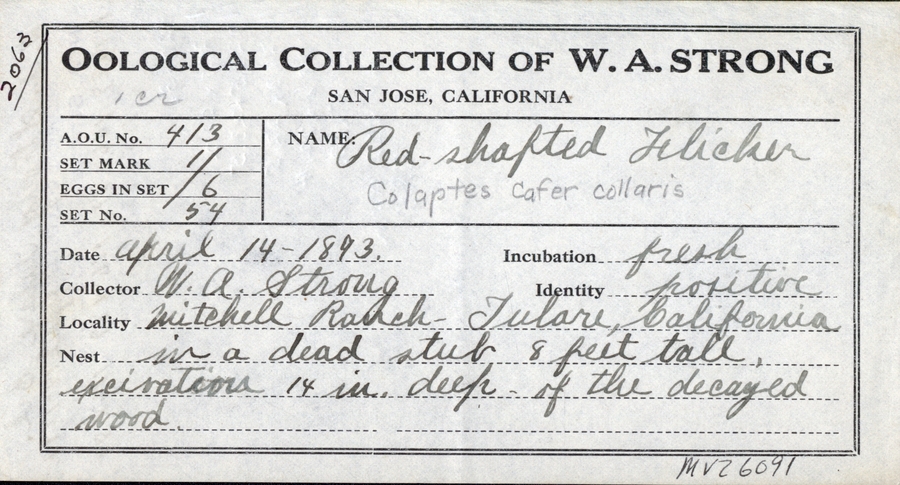 2063
OOLOGICAL COLLECTION OF W. A. STRONG
SAN JOSE, CALIFORNIA
A.O.U. No. 413
SET MARK 1/6
EGGS IN SET
SET No. 54
NAME: Red-shafted Flicker
Colaptes cafer collaris
Date April 14-1893. Incubation fresh
Collector W. A. Strong Identity positive
Locality Mitchell Ranch - Tulare, California
Nest in a dead stub 8 feet tall,
excivation 14 in. deep - of the decayed
wood.
MVZ6091